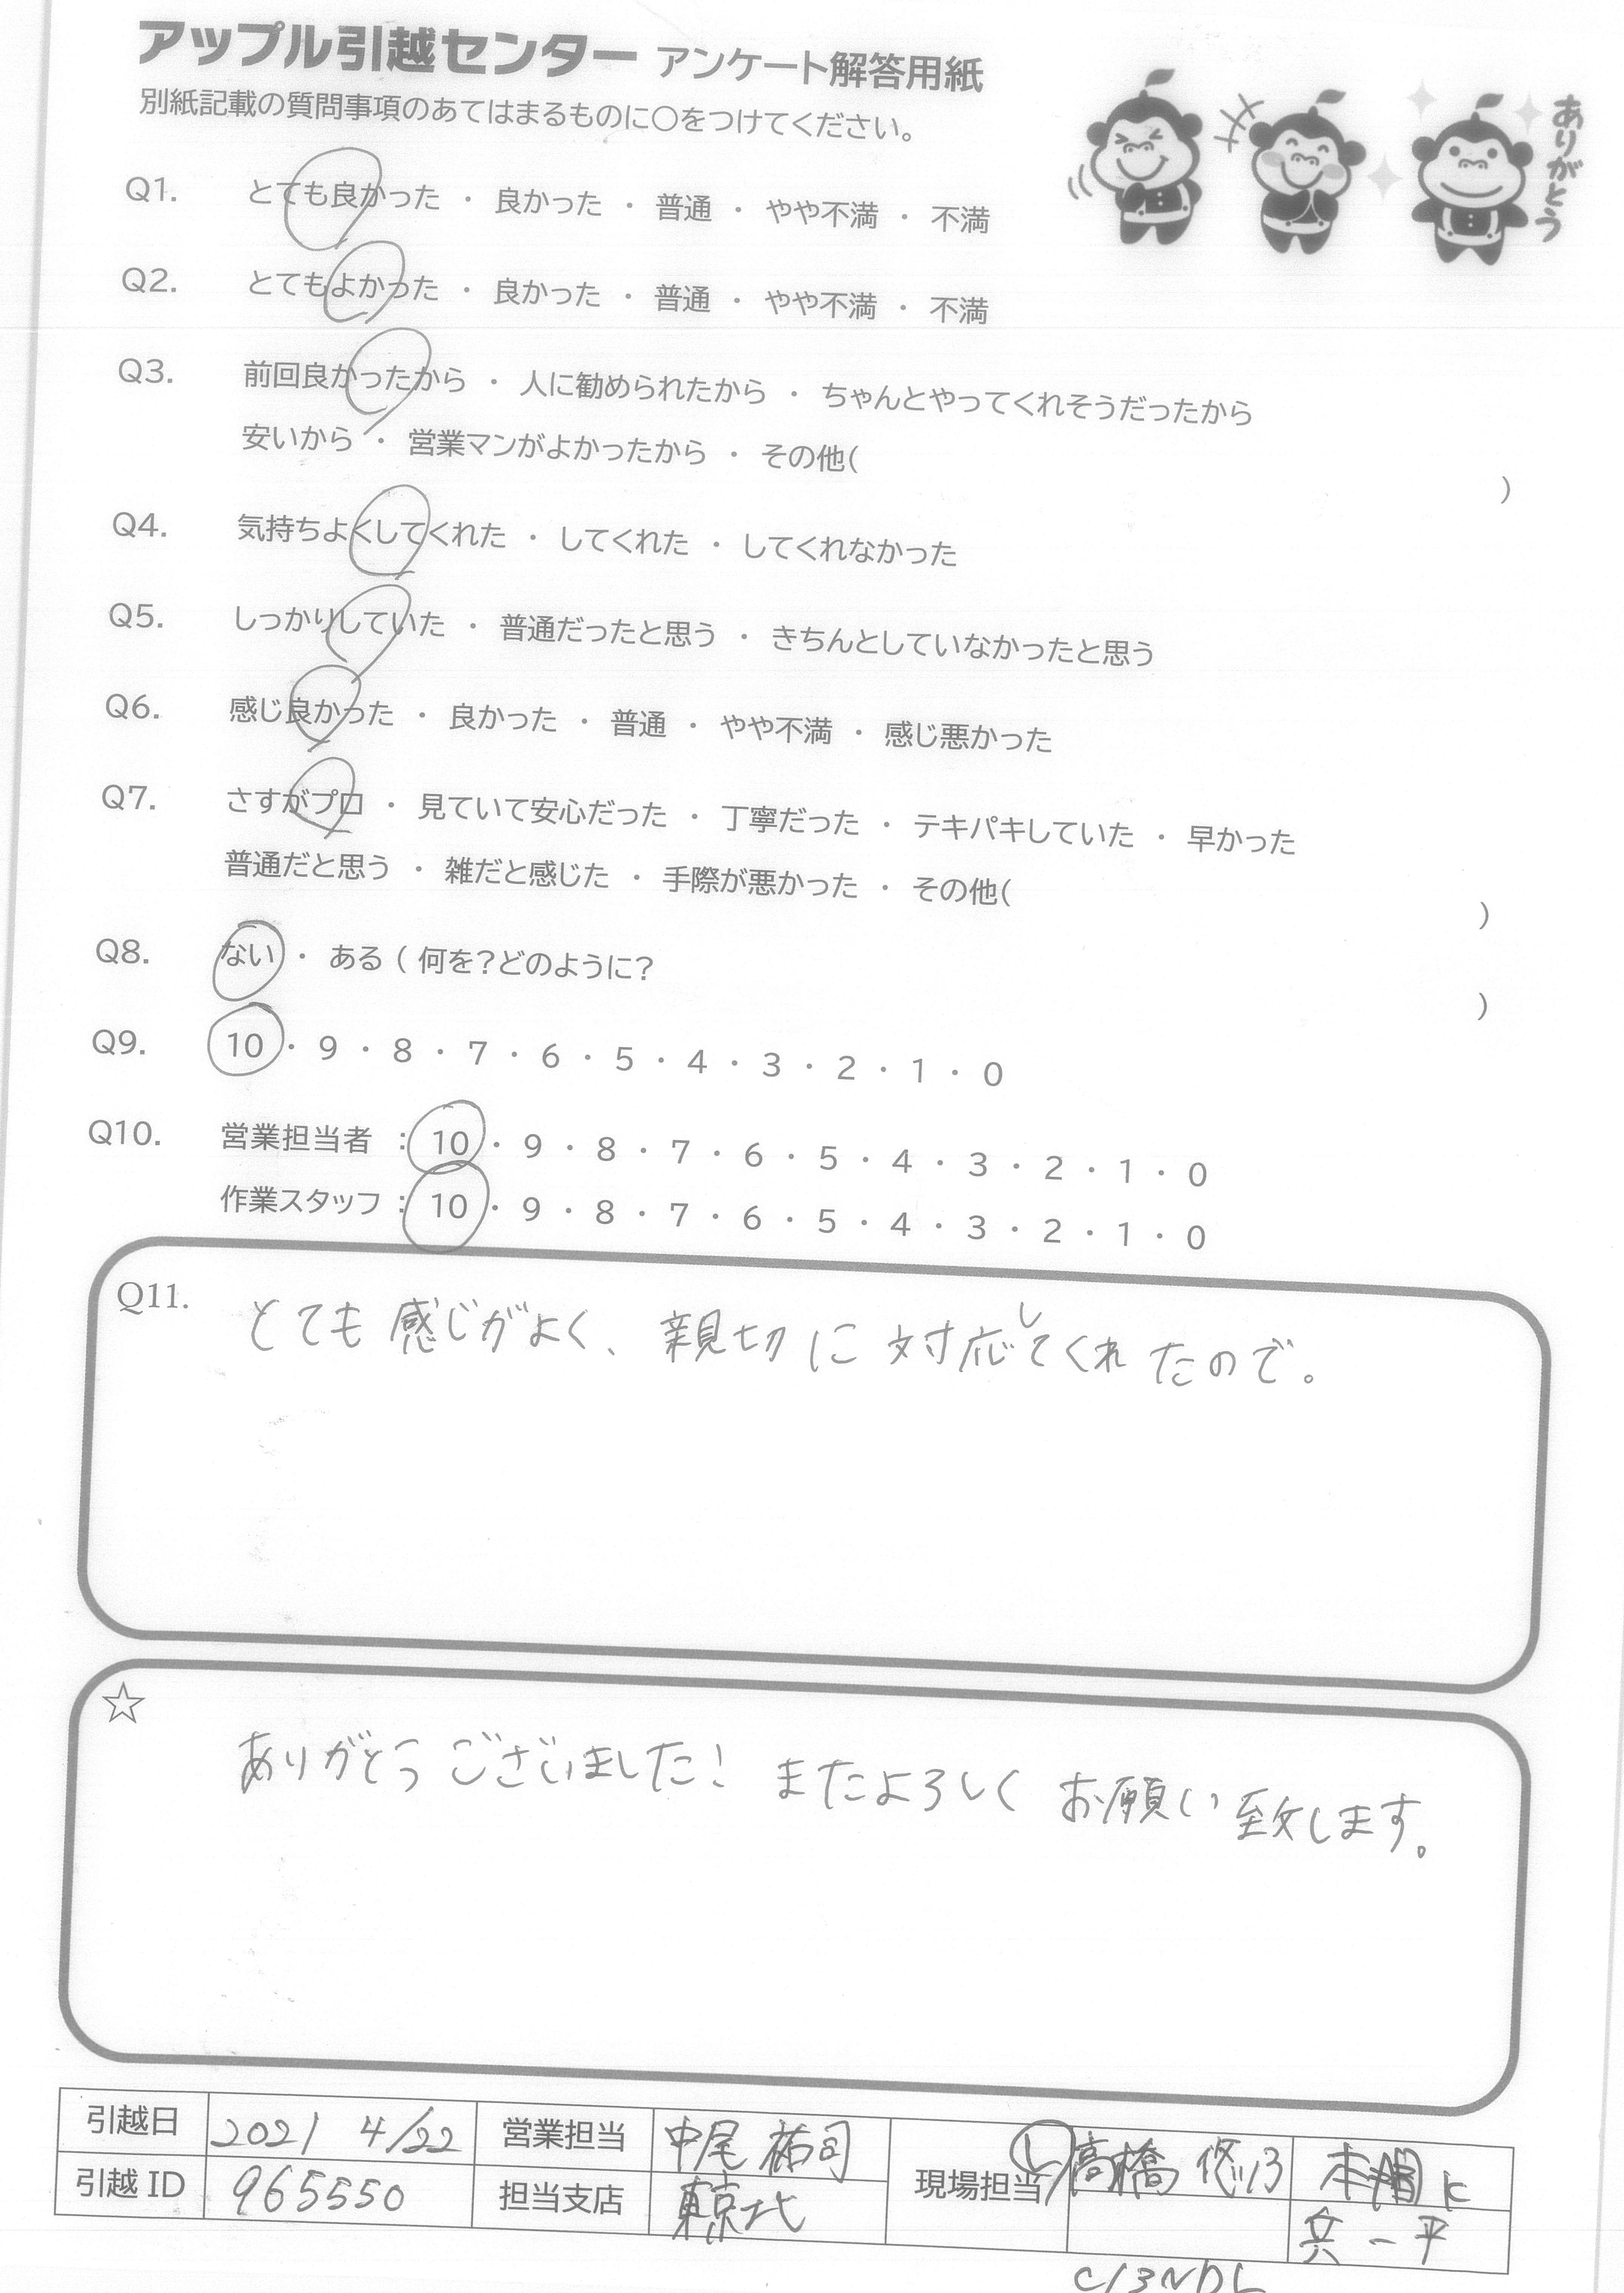 アップル引越センター アンケート解答用紙
別紙記載の質問事項のあてはまるものに○をつけてください。
ありがとう
Q1. とても良かった ・ 良かった ・ 普通 ・ やや不満 ・ 不満
Q2. とてもよかった ・ 良かった ・ 普通 ・ やや不満 ・ 不満
Q3. 前回良かったから ・ 人に勧められたから ・ ちゃんとやってくれそうだったから
安いから ・ 営業マンがよかったから ・ その他( )
Q4. 気持ちよくしてくれた ・ してくれた ・ してくれなかった
Q5. しっかりしていた ・ 普通だったと思う ・ きちんとしていなかったと思う
Q6. 感じ良かった ・ 良かった ・ 普通 ・ やや不満 ・ 感じ悪かった
Q7. さすがプロ ・ 見ていて安心だった ・ 丁寧だった ・ テキパキしていた ・ 早かった
普通だと思う ・ 雑だと感じた ・ 手際が悪かった ・ その他( )
Q8. ない ・ ある ( 何を?どのように? )
Q9. 10 ・ 9 ・ 8 ・ 7 ・ 6 ・ 5 ・ 4 ・ 3 ・ 2 ・ 1 ・ 0
Q10. 営業担当者 : 10 ・ 9 ・ 8 ・ 7 ・ 6 ・ 5 ・ 4 ・ 3 ・ 2 ・ 1 ・ 0
作業スタッフ : 10 ・ 9 ・ 8 ・ 7 ・ 6 ・ 5 ・ 4 ・ 3 ・ 2 ・ 1 ・ 0
Q11. とても感じがよく、親切に対応してくれたので。
☆
ありがとうございました! またよろしくお願い致します。
引越日 2021 4/22 営業担当 中尾 祐司 現場担当 Ⓛ高橋
引越 ID 965550 担当支店 東京北 一平